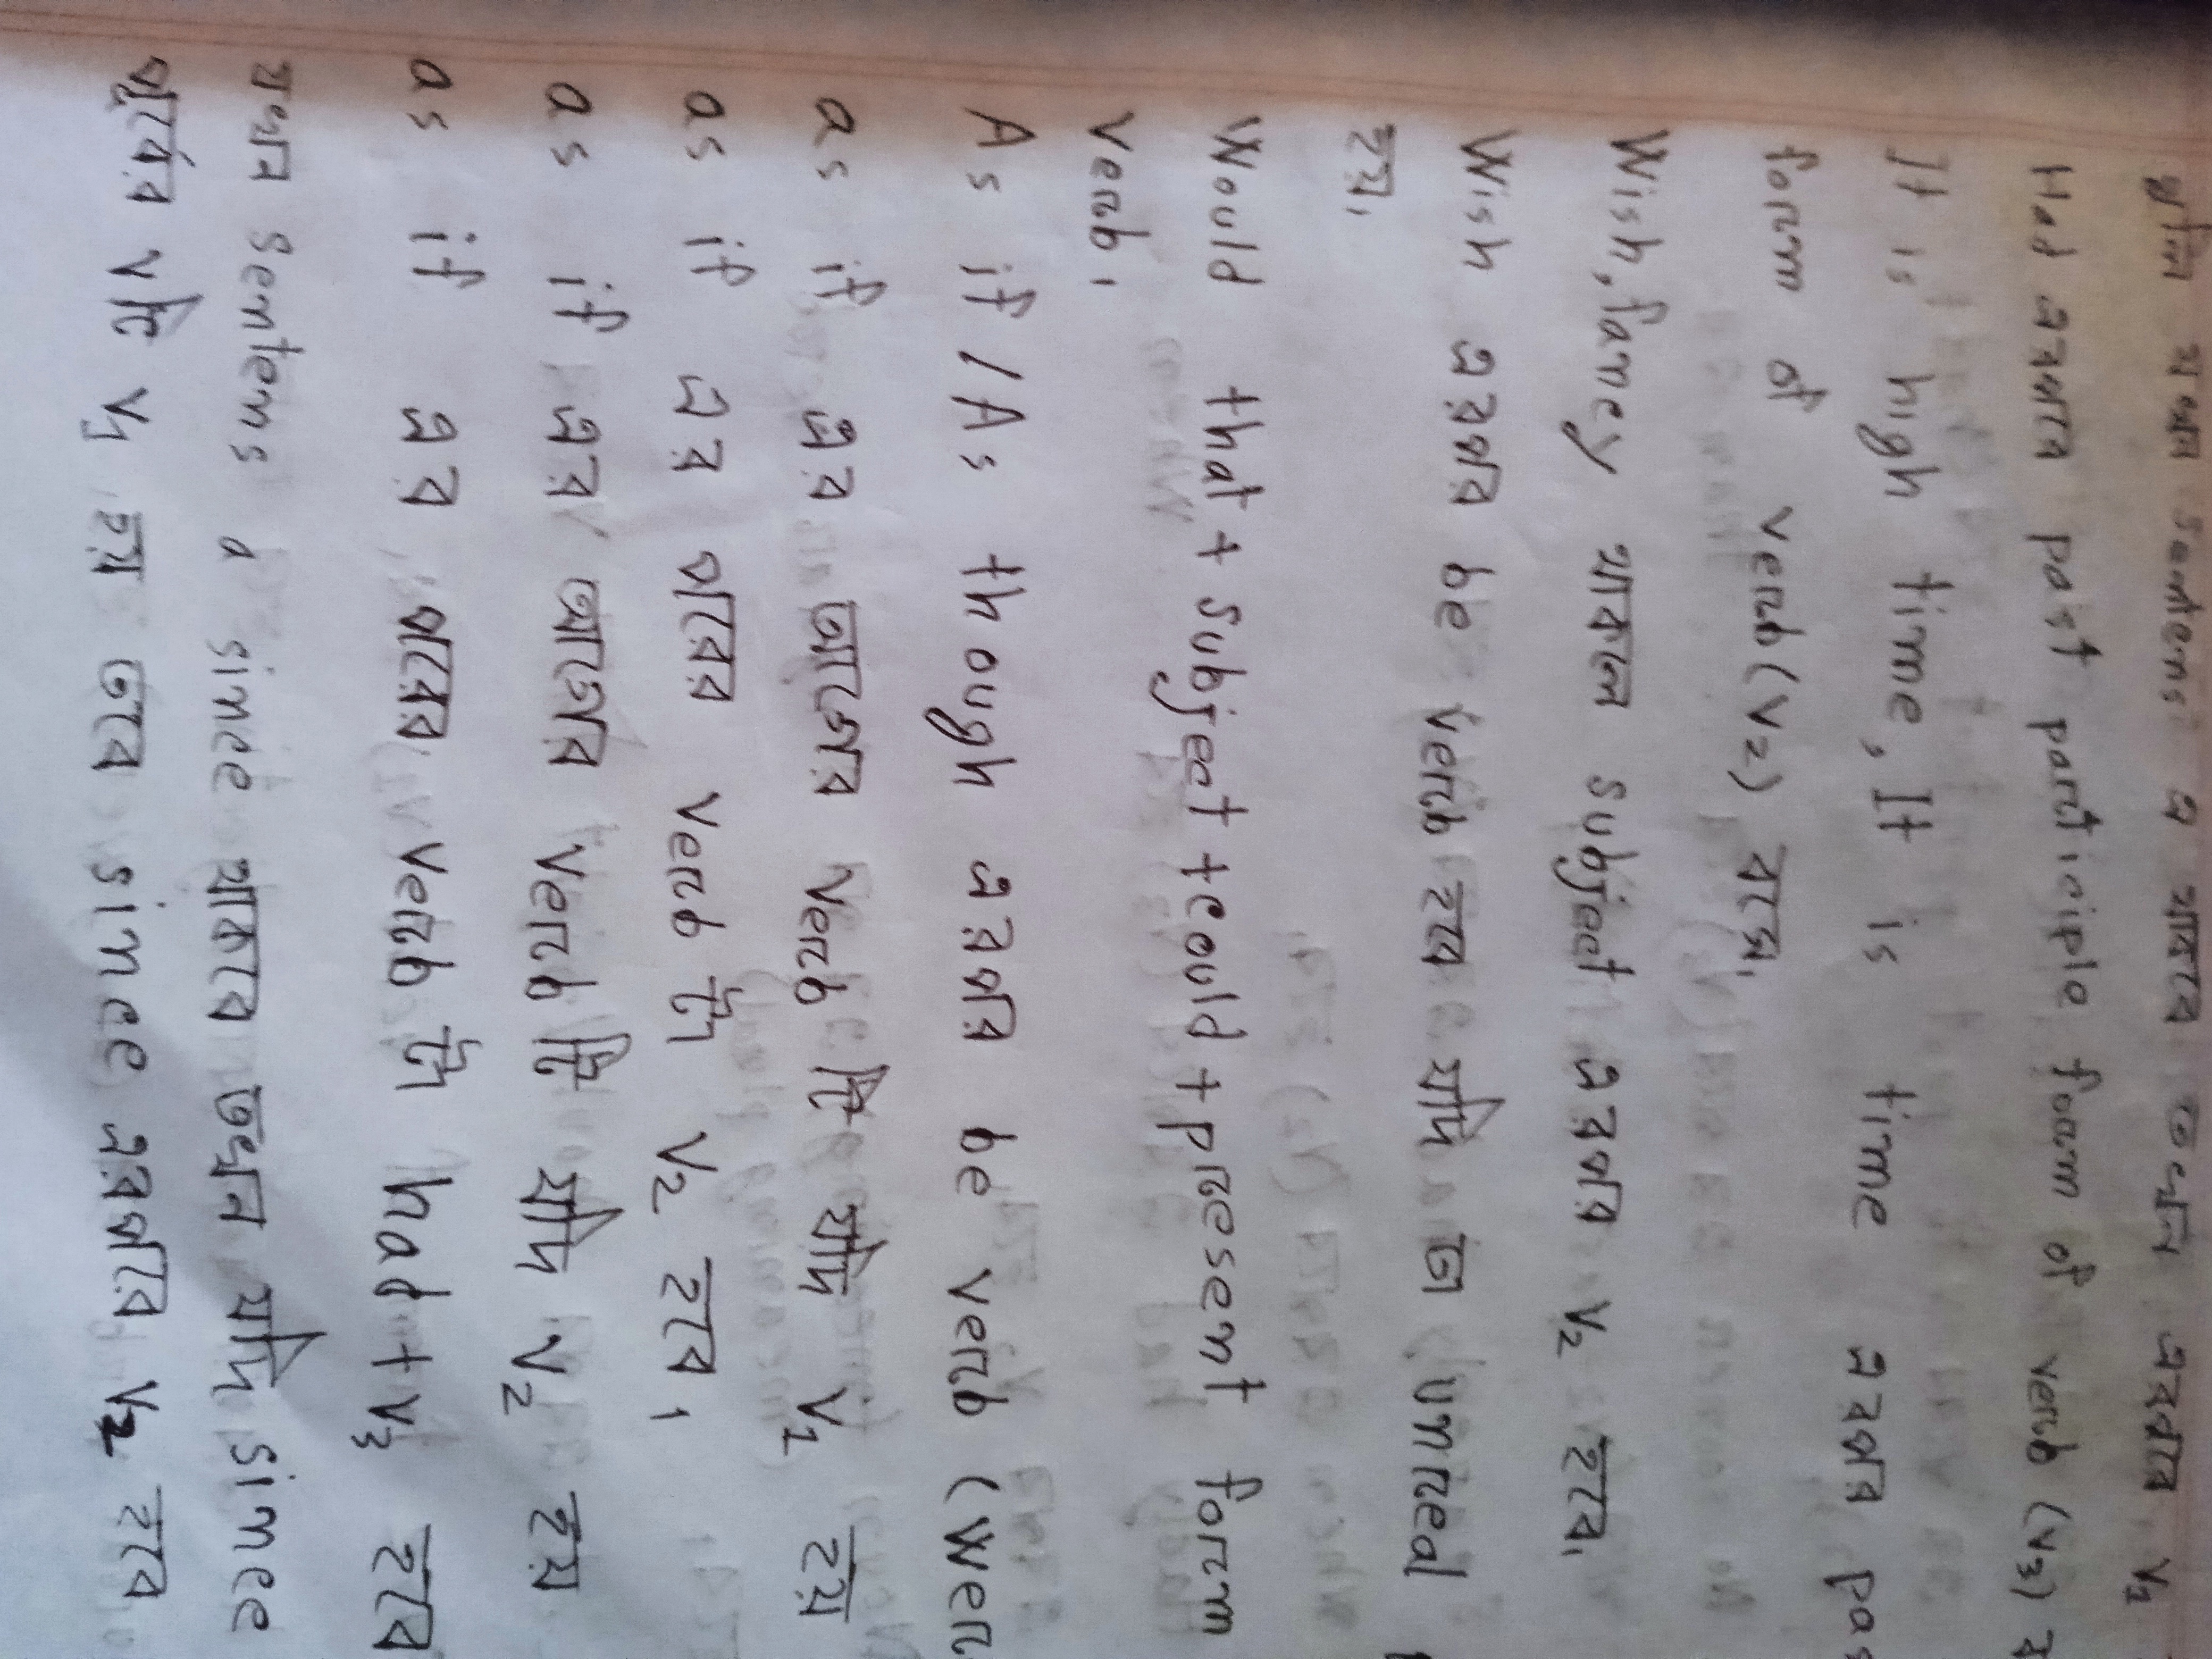 যখন sentens এ থাকবে তখন এরপরে V1
Had এরপরে past participle foam of verb (V3)
It is high time, It is time এরপর pas
form of verb (V2) বসে,
Wish, famey থাকলে subject এরপর V2 হবে,
Wish এরপর be verb হবে যদি তা unreal
হয়,
Would that + subject + could + present form
verb,
As if / As though এরপর be verb (wer
as if এর আগের verb টি যদি V1 হয়
as if এর পরের verb টা V2 হবে,
as if এর আগের verb টি যদি V2 হয়
as if এর পরের verb টা had + V3 হবে
যখন sentens এ since থাকবে তখন যদি since
পূর্বের টি V1 হয় তবে since এরপরে V2 হবে